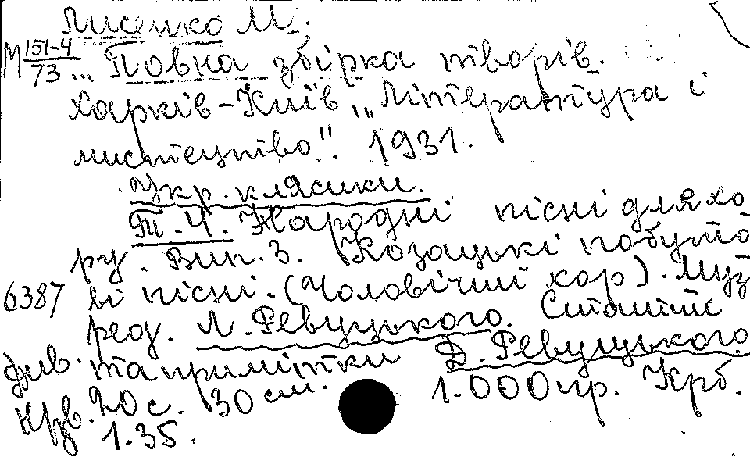 Лисенко М.
М 151-4/73 ... Повна збірка творів.
Харків-Київ „Література і
мистецтво". 1931.
Укр. клясики.
Т. 4. Народні пісні для хо
ру. Вип. 3. Козацькі побуто
6387 ві пісні. (Чоловічий хор). Муз
ред. Л. Ревуцького. Статті
та примітки Д. Ревуцького
Див. 20 с. 30 см. 1.000 пр. Крб.
1.35.